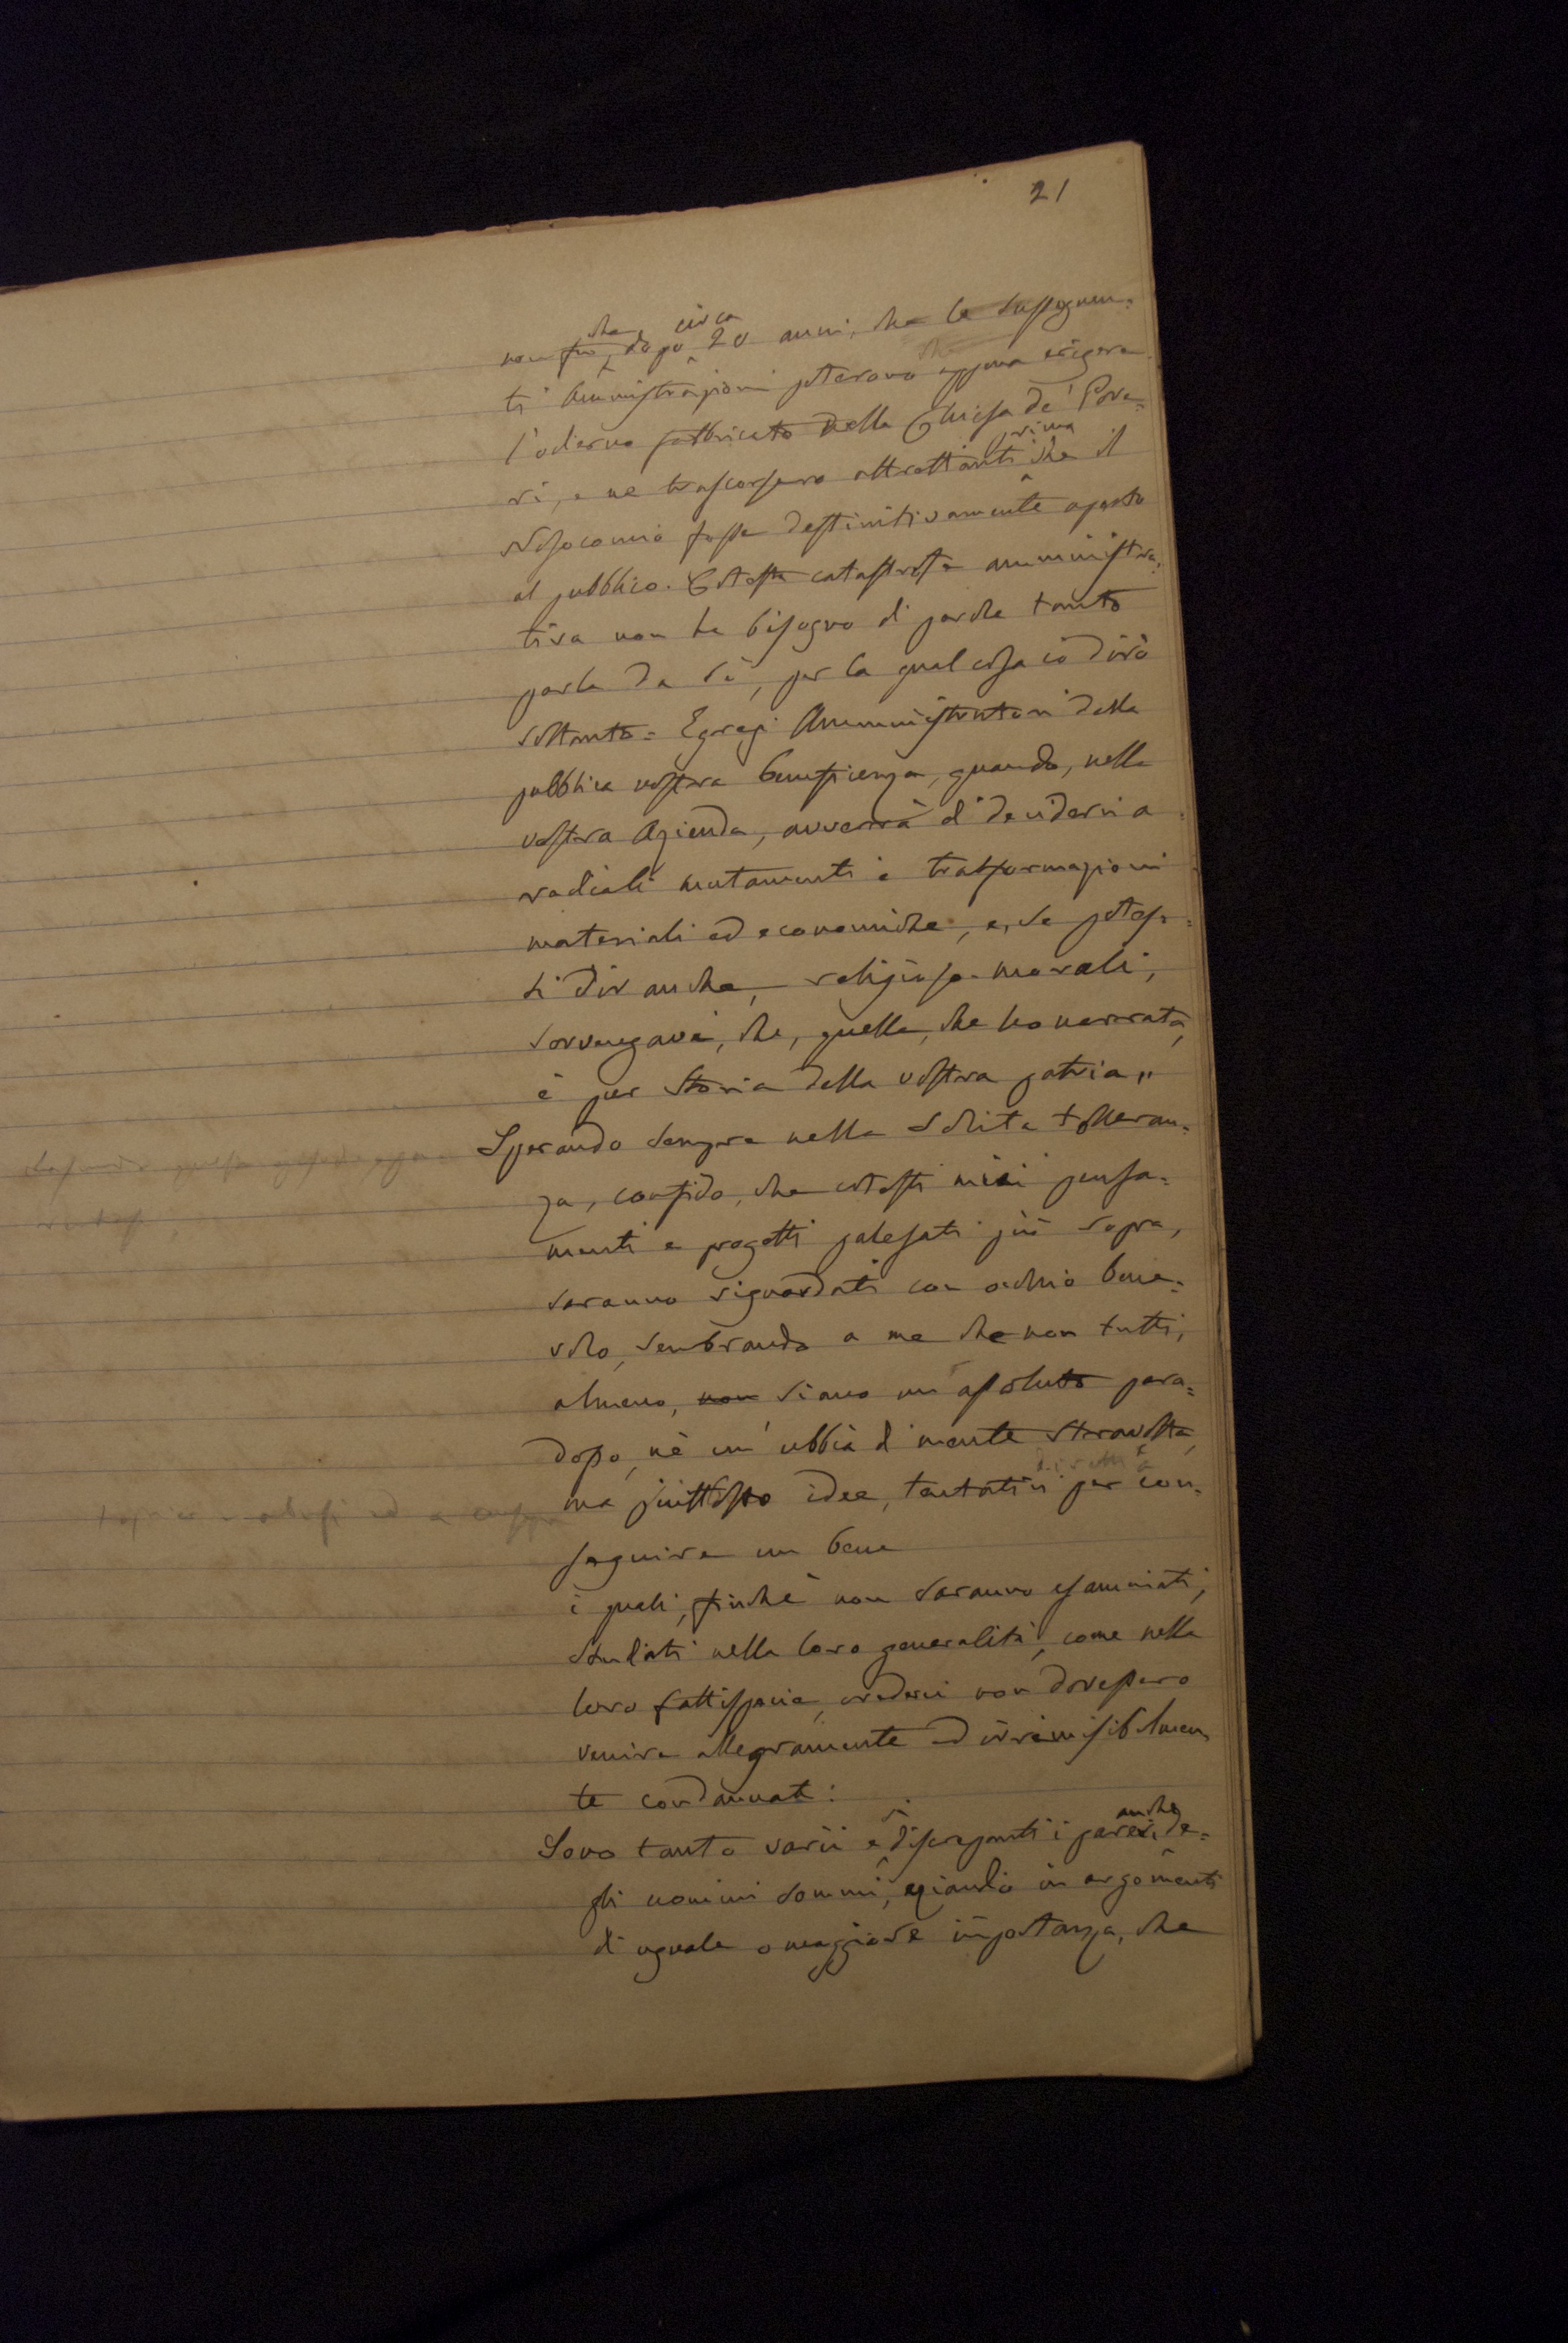 21
non fu che, dopo circa 20 anni, che le susseguen=
ti Amministrazioni poterono appena erigere
l'odierno fabbricato della Chiesa de' Pove=
ri, e ne trascorsero altrettanti prima che il
Nosocomio fosse destinitivamente aperto
al pubblico. Cotesta catastrofe amministra=
tiva non ha bisogno di parole tanto
parla da sè, per la qual cosa io dirò
soltanto = Egregi Amministratori della
pubblica vostra beneficienza, quando, nella
vostra Azienda, avverrà di decidervi a
radicali mutamenti e trasformazioni
materiali ed economiche, e, se potes=
si dir anche, religioso-morali,
sovvengavi, che, quella, che ho narrata,
è pur storia della vostra patria"
Sperando sempre nella solita tolleran=
za, confido, che cotesti miei pensa=
menti e progetti palesati più sopra,
saranno riguardati con occhio bene=
volo, sembrando a me che non tutti,
almeno, non siano un assoluto para=
dosso, nè un' ubbìa di mente stravolta,
ma piuttosto idee, tentativi diretti a per con=
seguire un bene
i quali, finchè non saranno esaminati,
studiati nella loro generalità, come nella
loro fattispecie, crederei non dovessero
venire allegramente ed irremisibilmen
te condannati:
Sono tanto varii e sì discrepanti i pareri, anche de=
gli uomini sommi, eziandio in argomenti
di uguale o maggiore importanza, che